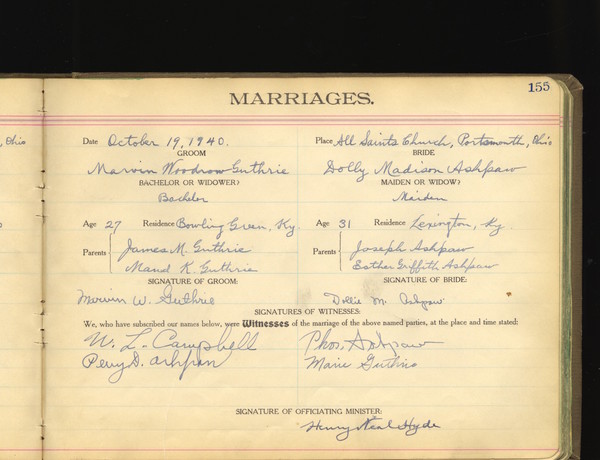 155
MARRIAGES.
, Ohio
Date October 19, 1940. Place All Saints Church, Portsmouth, Ohio
GROOM BRIDE
Marvin Woodrow Guthrie Dolly Madison Ashpaw
BACHELOR OR WIDOWER? MAIDEN OR WIDOW?
Bachelor Maiden
Age 27 Residence Bowling Green, Ky. Age 31 Residence Lexington, Ky.
Parents James M. Guthrie Parents Joseph Ashpaw
Maud K. Guthrie Esther Griffith Ashpaw
SIGNATURE OF GROOM: SIGNATURE OF BRIDE:
Marvin W. Guthrie Dollie M. Ashpaw
SIGNATURES OF WITNESSES:
We, who have subscribed our names below, were Witnesses of the marriage of the above named parties, at the place and time stated:
W. L. Campbell Ashpaw
Perry D. Ashpaw Marie Guthrie
SIGNATURE OF OFFICIATING MINISTER:
Henry Neal Hyde